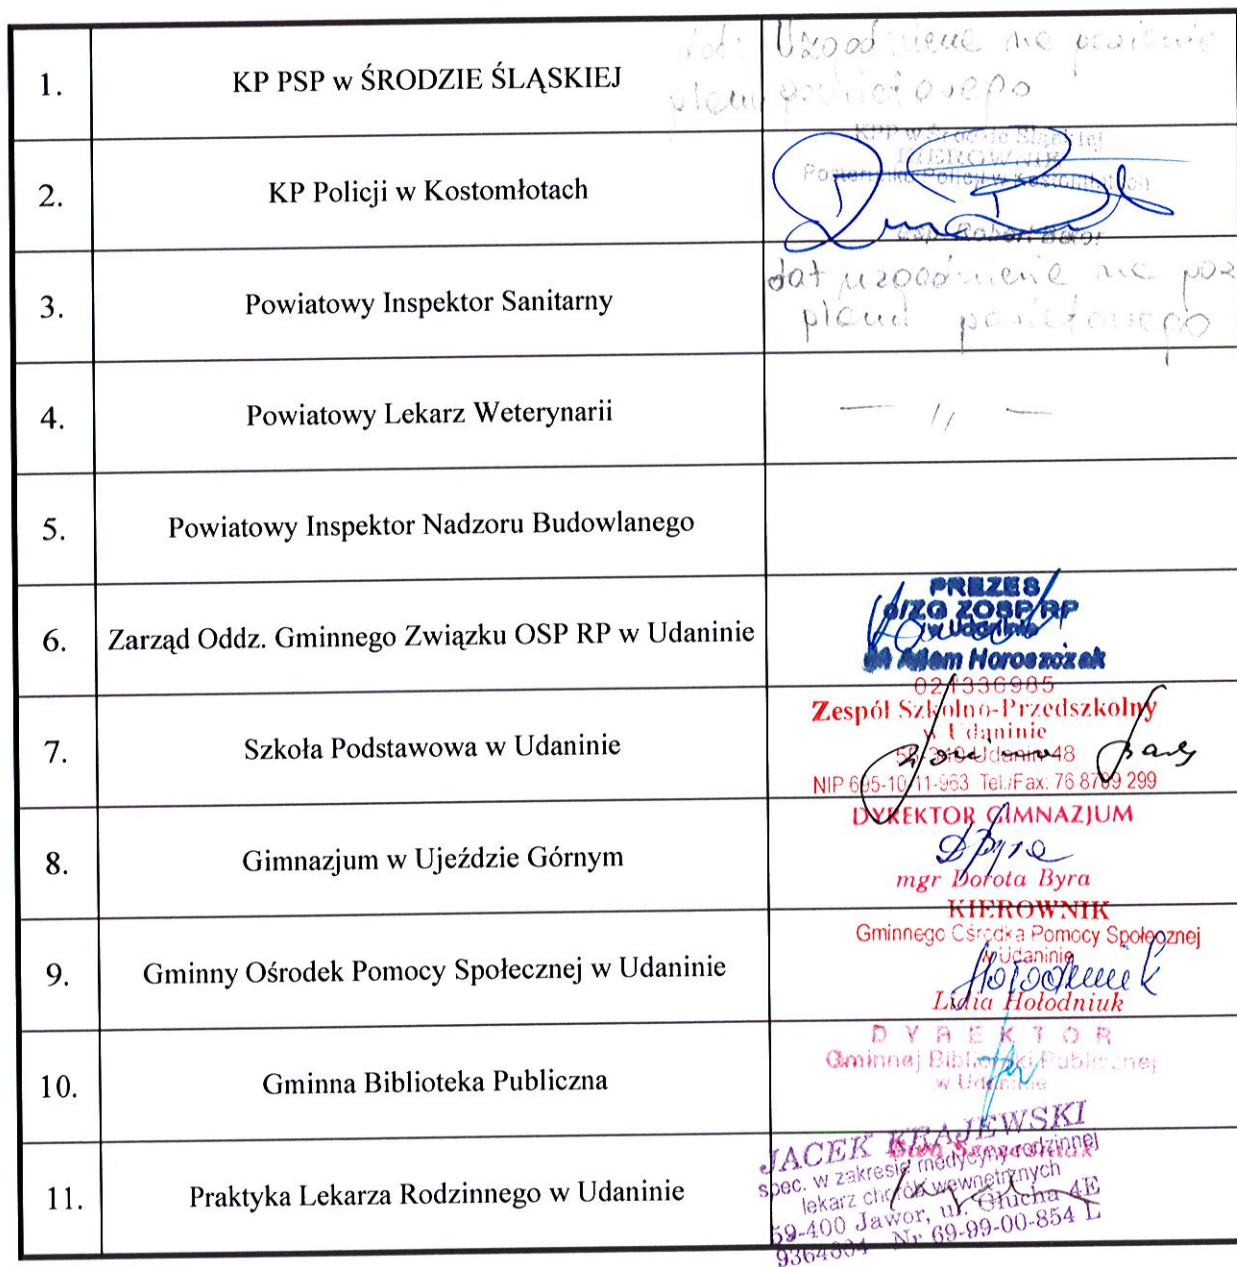 1. KP PSP w ŚRODZIE ŚLĄSKIEJ
Uzgodnienie na poziomie
planu powiatowego
2. KP Policji w Kostomłotach
KPP w Środzie Śląskiej
KIEROWNIK
Posterunku Policji w Kostomłotach
3. Powiatowy Inspektor Sanitarny
uzgodnienie na poz
planu powiatowego
4. Powiatowy Lekarz Weterynarii
— ,, —
5. Powiatowy Inspektor Nadzoru Budowlanego
6. Zarząd Oddz. Gminnego Związku OSP RP w Udaninie
PREZES
O/ZG ZOSP RP
w Udaninie
Adam Horoszczak
7. Szkoła Podstawowa w Udaninie
021336985
Zespół Szkolno-Przedszkolny
w Udaninie
55-340 Udanin 48
NIP 695-10-11-963 Tel./Fax: 76 8709 299
8. Gimnazjum w Ujeździe Górnym
DYREKTOR GIMNAZJUM
DByra
mgr Dorota Byra
9. Gminny Ośrodek Pomocy Społecznej w Udaninie
KIEROWNIK
Gminnego Ośrodka Pomocy Społecznej
w Udaninie
Hołodniuk
Lidia Hołodniuk
10. Gminna Biblioteka Publiczna
DYREKTOR
Gminnej Biblioteki Publicznej
w Udaninie
11. Praktyka Lekarza Rodzinnego w Udaninie
JACEK KRAJEWSKI
spec. w zakresie medycyny rodzinnej
lekarz chorób wewnętrznych
59-400 Jawor, ul. Głucha 4E
9364804 Nr 69-99-00-854 L